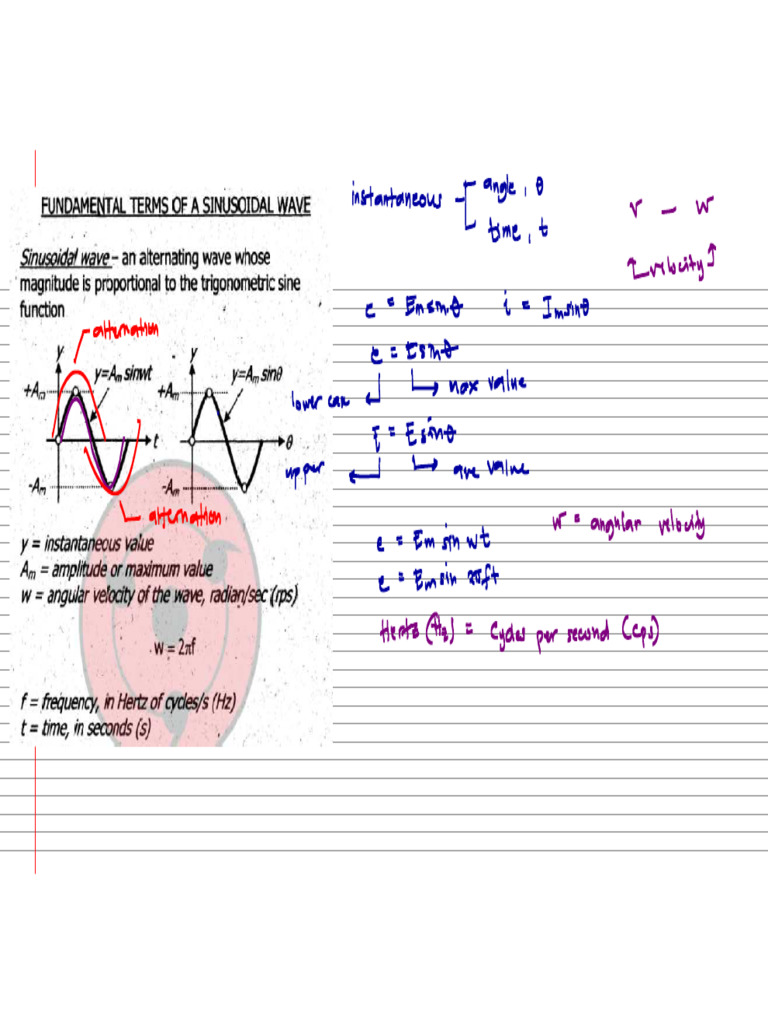 FUNDAMENTAL TERMS OF A SINUSOIDAL WAVE
Sinusoidal wave – an alternating wave whose
magnitude is proportional to the trigonometric sine
function
alternation
y
y=Aₘ sinwt
+Aₘ
t
-Aₘ
y
y=Aₘ sinθ
+Aₘ
θ
-Aₘ
alternation
y = instantaneous value
Aₘ = amplitude or maximum value
w = angular velocity of the wave, radian/sec (rps)
w = 2πf
f = frequency, in Hertz of cycles/s (Hz)
t = time, in seconds (s)
instantaneous
angle, θ
time, t
v – w
velocity
e = Em sinθ i = Im sinθ
e = Esinθ
lower case
max value
I = Esinθ
upper
ave value
w = angular velocity
e = Em sin wt
e = Em sin 2πft
Hertz (Hz) = Cycles per second (cps)